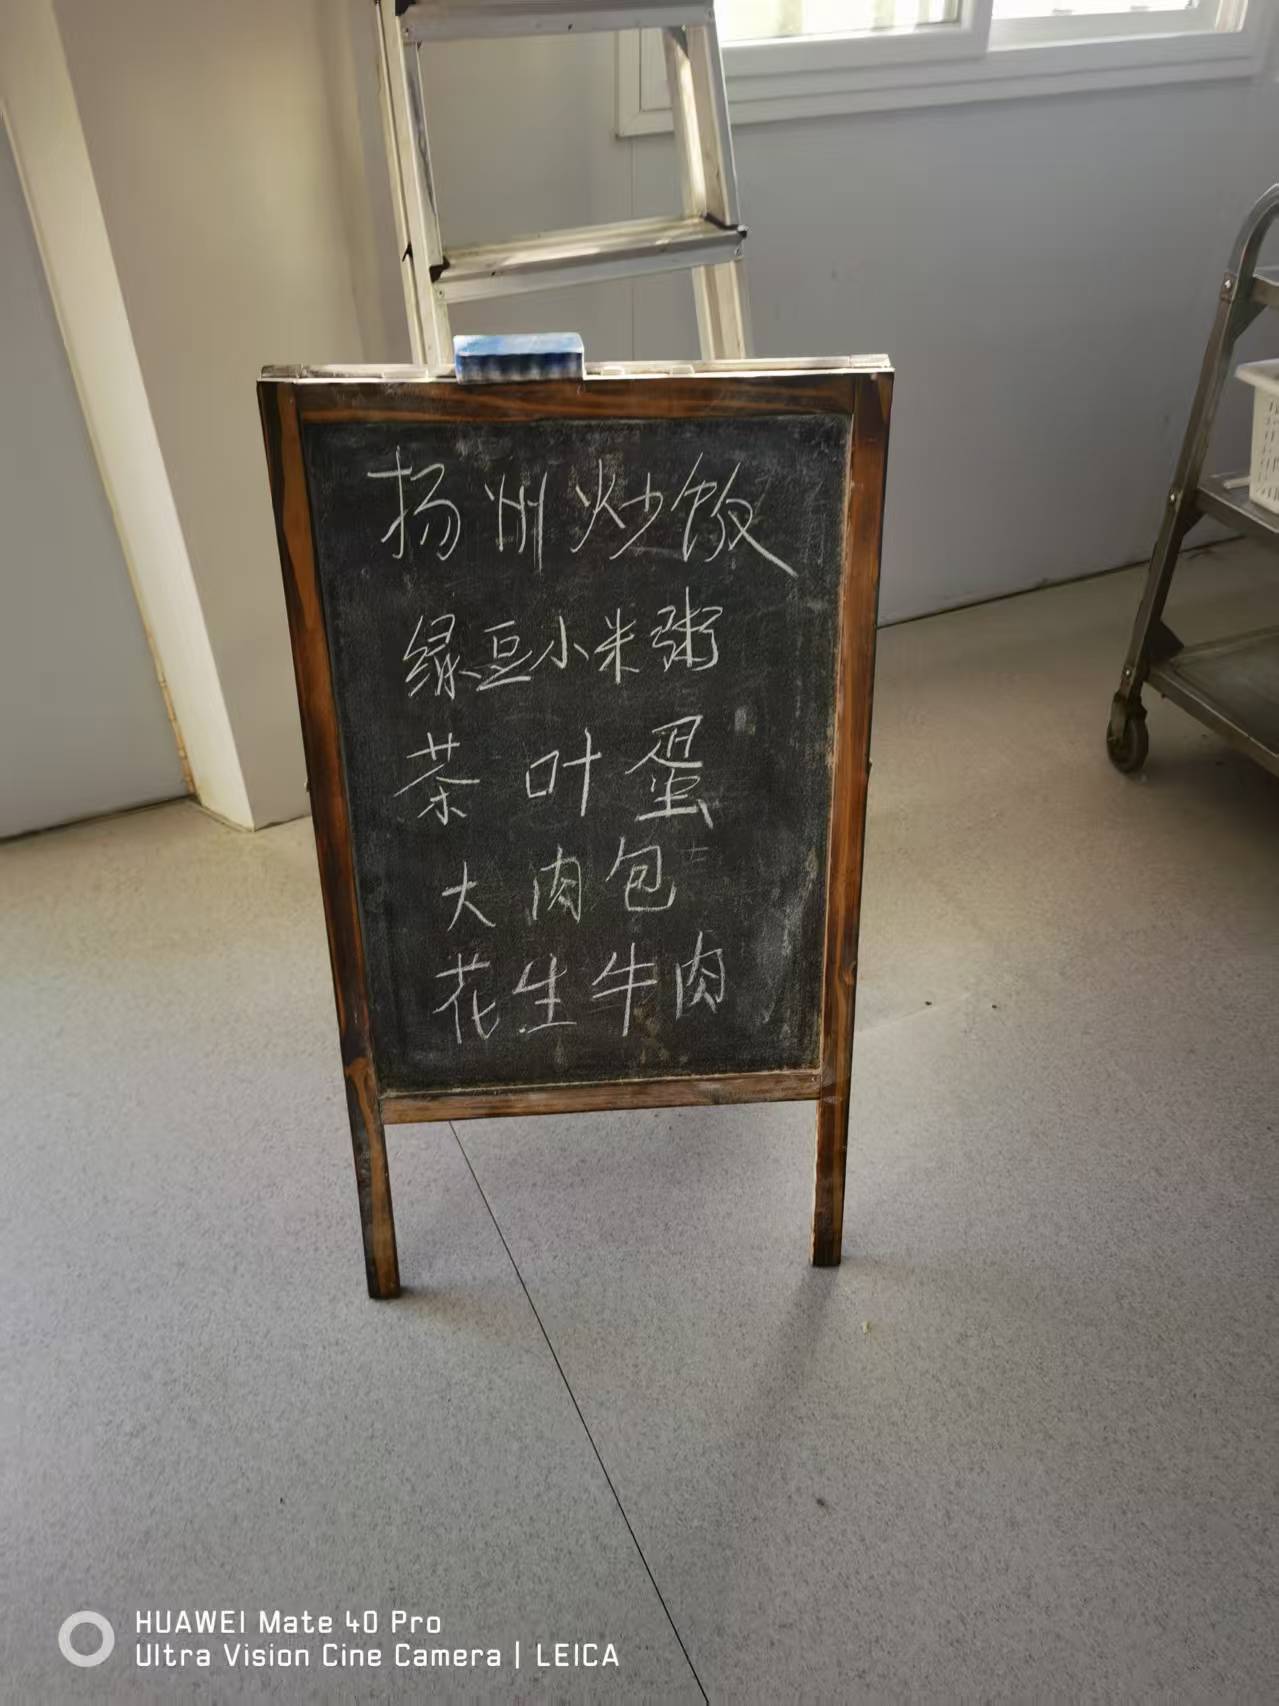 扬州炒饭
绿豆小米粥
茶叶蛋
大肉包
花生牛肉
HUAWEI Mate 40 Pro
Ultra Vision Cine Camera | LEICA